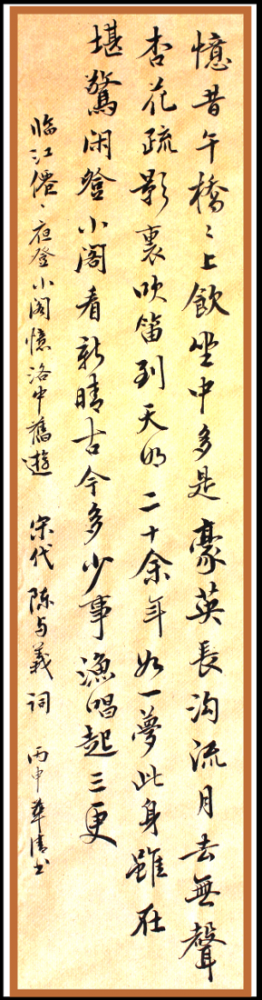 憶昔午橋〻上飲坐中多是豪英長沟流月去無聲
杏花疏影裏吹笛到天明二十余年如一夢此身雖在
堪驚闲登小阁看新晴古今多少事漁唱起三更
临江僊〻夜登小阁憶洛中舊遊 宋代 陈与義 词 丙申 书